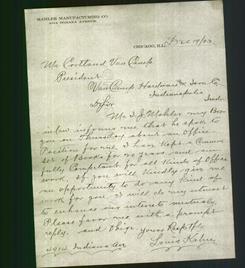 MAHLER MANUFACTURING CO
CHICAGO, ILL.
Mr Cortland Van Camp
President
Van Camp Hardware & Iron Co
Indianapolis
Ind.
D. Sir
Mr I. J. Mahler my Bro
in law informs me that he spoke to
you on Thursday about an Office
Position for me. I have kept a
set of Books for and am
fully Competent for all Kinds of Office
work. If you will Kindly give me
an opportunity to do any Kind of
work for you, I will do my utmost
to enhance your interests mutually.
Please favor me with a prompt
reply. and Oblige. Yours Respctfly
Louis
Indiana Ave